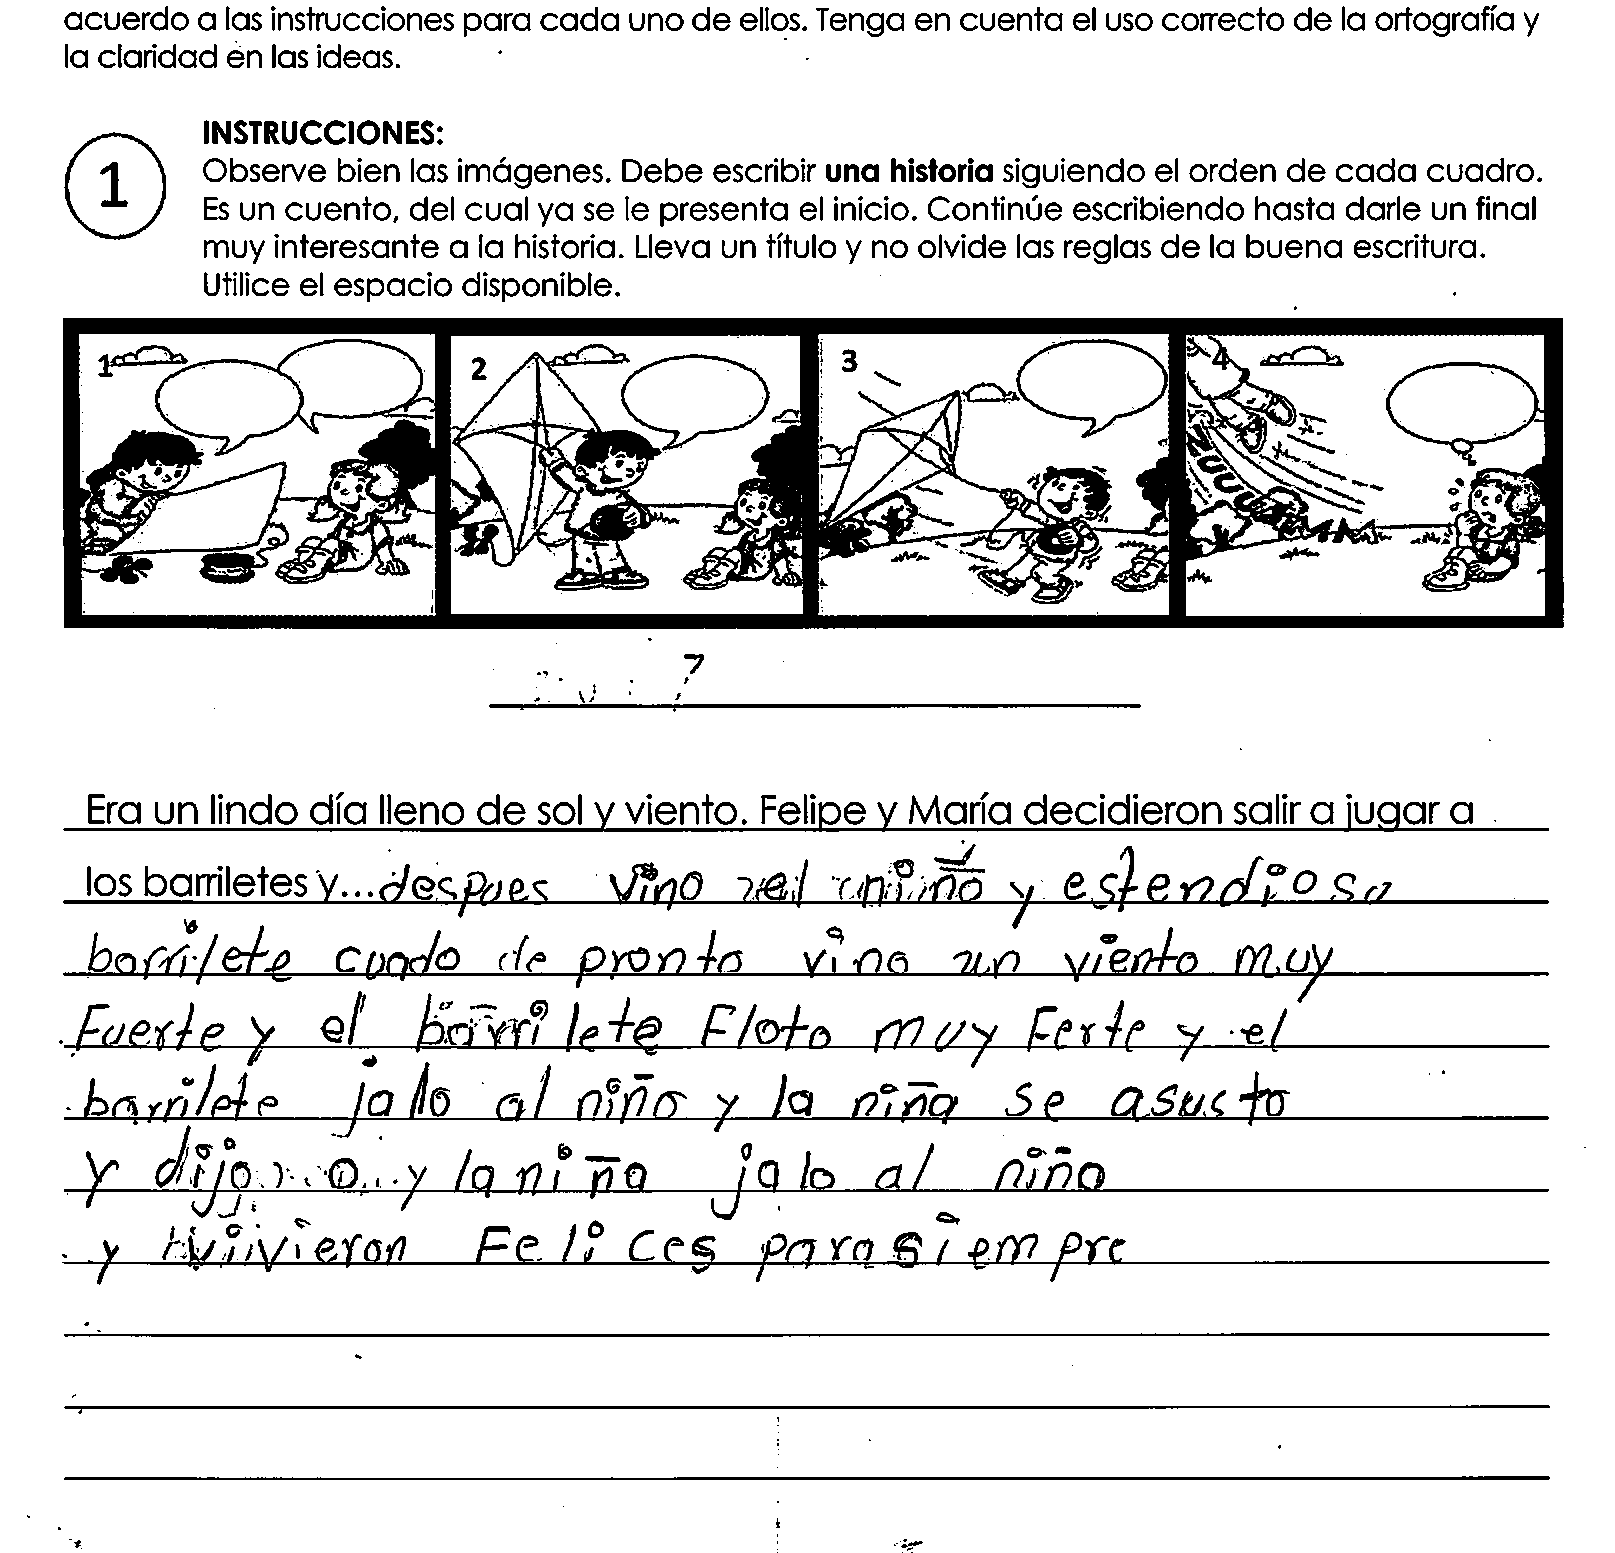 acuerdo a las instrucciones para cada uno de ellos. Tenga en cuenta el uso correcto de la ortografía y
la claridad en las ideas.
1
INSTRUCCIONES:
Observe bien las imágenes. Debe escribir una historia siguiendo el orden de cada cuadro.
Es un cuento, del cual ya se le presenta el inicio. Continúe escribiendo hasta darle un final
muy interesante a la historia. Lleva un título y no olvide las reglas de la buena escritura.
Utilice el espacio disponible.
1 2 3 4
ZUUUUMMM
Era un lindo día lleno de sol y viento. Felipe y María decidieron salir a jugar a
los barriletes y...despues vino el niño y estendioso
barrilete cuado de pronto vino un viento muy
Fuerte y el barrilete Floto muy Ferte y el
barrilete jalo al niño y la niña se asusto
y dijo y la niña jalo al niño
y vivieron Felices para siempre